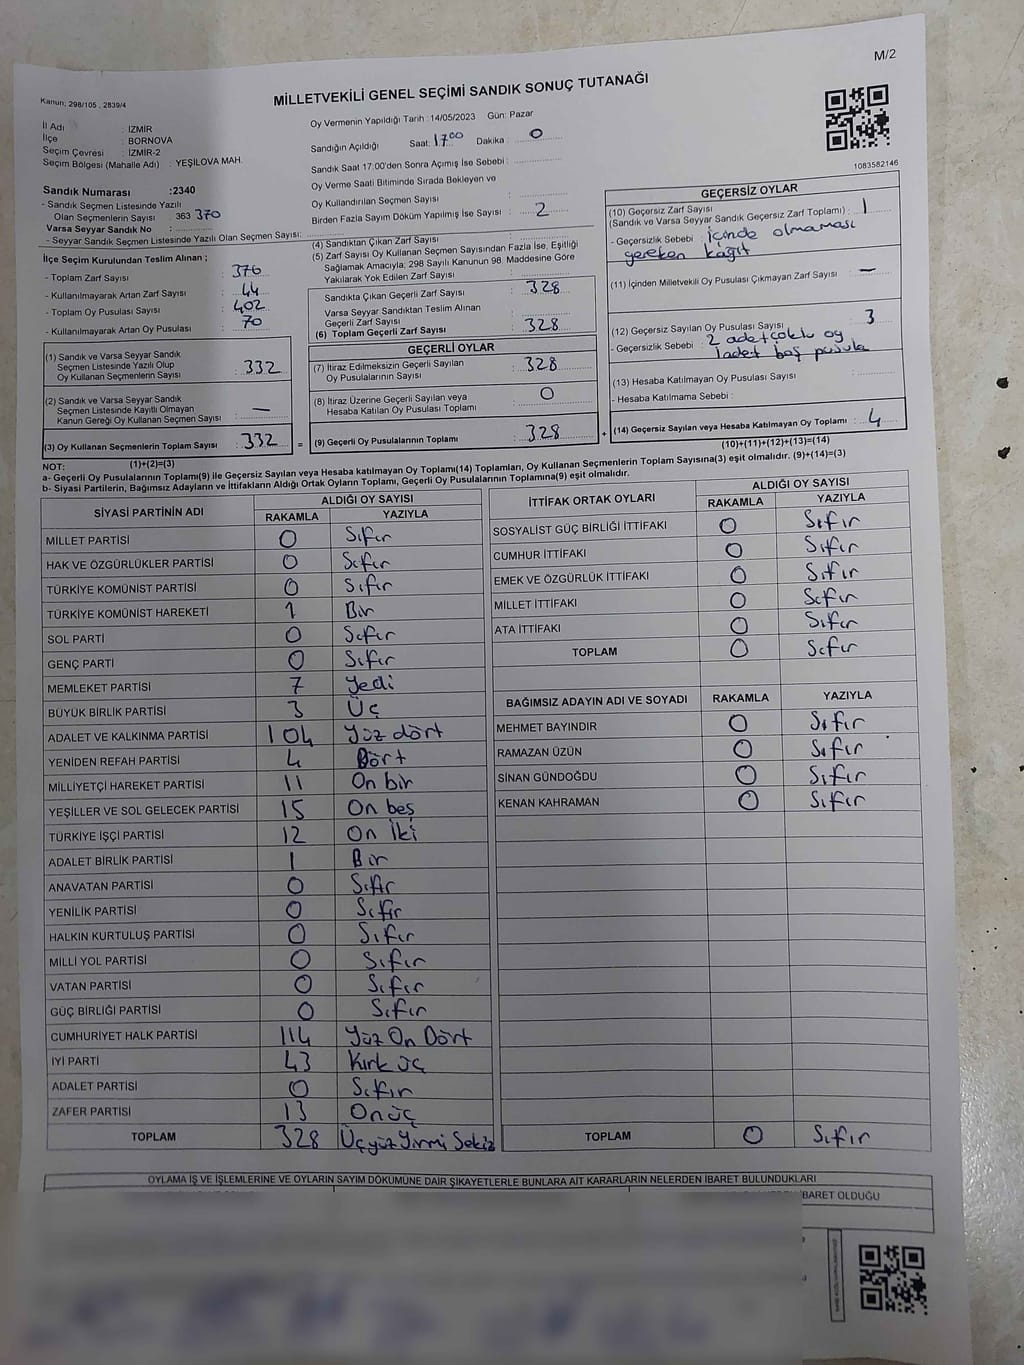 M/2
Kanun; 298/105 , 2839/4
MİLLETVEKİLİ GENEL SEÇİMİ SANDIK SONUÇ TUTANAĞI
İl Adı : İZMİR
İlçe : BORNOVA
Seçim Çevresi : İZMİR-2
Seçim Bölgesi (Mahalle Adı) : YEŞİLOVA MAH.
Sandık Numarası :2340
- Sandık Seçmen Listesinde Yazılı
Olan Seçmenlerin Sayısı : 363 370
Varsa Seyyar Sandık No :
- Seyyar Sandık Seçmen Listesinde Yazılı Olan Seçmen Sayısı:
Oy Vermenin Yapıldığı Tarih : 14/05/2023 Gün: Pazar
Sandığın Açıldığı Saat: 17.00 Dakika : 0
Sandık Saat 17:00'den Sonra Açımış İse Sebebi :
Oy Verme Saati Bitiminde Sırada Bekleyen ve
Oy Kullandırılan Seçmen Sayısı :
Birden Fazla Sayım Döküm Yapılmış İse Sayısı : 2
1083582146
İlçe Seçim Kurulundan Teslim Alınan ;
- Toplam Zarf Sayısı : 376
- Kullanılmayarak Artan Zarf Sayısı : 44
- Toplam Oy Pusulası Sayısı : 402
- Kullanılmayarak Artan Oy Pusulası : 70
(1) Sandık ve Varsa Seyyar Sandık
Seçmen Listesinde Yazılı Olup
Oy Kullanan Seçmenlerin Sayısı : 332
(2) Sandık ve Varsa Seyyar Sandık
Seçmen Listesinde Kayıtlı Olmayan
Kanun Gereği Oy Kullanan Seçmen Sayısı : —
(3) Oy Kullanan Seçmenlerin Toplam Sayısı : 332
(1)+(2)=(3)
(4) Sandıktan Çıkan Zarf Sayısı :
(5) Zarf Sayısı Oy Kullanan Seçmen Sayısından Fazla İse, Eşitliği
Sağlamak Amacıyla; 298 Sayılı Kanunun 98. Maddesine Göre
Yakılarak Yok Edilen Zarf Sayısı :
Sandıkta Çıkan Geçerli Zarf Sayısı : 328
Varsa Seyyar Sandıktan Teslim Alınan
Geçerli Zarf Sayısı :
(6) Toplam Geçerli Zarf Sayısı : 328
GEÇERLİ OYLAR
(7) İtiraz Edilmeksizin Geçerli Sayılan
Oy Pusulalarının Sayısı : 328
(8) İtiraz Üzerine Geçerli Sayılan veya
Hesaba Katılan Oy Pusulası Toplamı : 0
= (9) Geçerli Oy Pusulalarının Toplamı : 328 +
GEÇERSİZ OYLAR
(10) Geçersiz Zarf Sayısı
(Sandık ve Varsa Seyyar Sandık Geçersiz Zarf Toplamı) : 1
- Geçersizlik Sebebi : içinde olmaması
gereken kağıt
(11) İçinden Milletvekili Oy Pusulası Çıkmayan Zarf Sayısı : —
(12) Geçersiz Sayılan Oy Pusulası Sayısı : 3
- Geçersizlik Sebebi : 2 adet çoklu oy
1 adet boş pusula
(13) Hesaba Katılmayan Oy Pusulası Sayısı :
- Hesaba Katılmama Sebebi :
(14) Geçersiz Sayılan veya Hesaba Katılmayan Oy Toplamı : 4
(10)+(11)+(12)+(13)=(14)
NOT:
a- Geçerli Oy Pusulalarının Toplamı(9) ile Geçersiz Sayılan veya Hesaba katılmayan Oy Toplamı(14) Toplamları, Oy Kullanan Seçmenlerin Toplam Sayısına(3) eşit olmalıdır. (9)+(14)=(3)
b- Siyasi Partilerin, Bağımsız Adayların ve İttifakların Aldığı Ortak Oyların Toplamı, Geçerli Oy Pusulalarının Toplamına(9) eşit olmalıdır.
SİYASİ PARTİNİN ADI ALDIĞI OY SAYISI
RAKAMLA YAZIYLA
MİLLET PARTİSİ 0 Sıfır
HAK VE ÖZGÜRLÜKLER PARTİSİ 0 Sıfır
TÜRKİYE KOMÜNİST PARTİSİ 0 Sıfır
TÜRKİYE KOMÜNİST HAREKETİ 1 Bir
SOL PARTİ 0 Sıfır
GENÇ PARTİ 0 Sıfır
MEMLEKET PARTİSİ 7 Yedi
BÜYÜK BİRLİK PARTİSİ 3 Üç
ADALET VE KALKINMA PARTİSİ 104 Yüz dört
YENİDEN REFAH PARTİSİ 4 Dört
MİLLİYETÇİ HAREKET PARTİSİ 11 On bir
YEŞİLLER VE SOL GELECEK PARTİSİ 15 On beş
TÜRKİYE İŞÇİ PARTİSİ 12 On İki
ADALET BİRLİK PARTİSİ 1 Bir
ANAVATAN PARTİSİ 0 Sıfır
YENİLİK PARTİSİ 0 Sıfır
HALKIN KURTULUŞ PARTİSİ 0 Sıfır
MİLLİ YOL PARTİSİ 0 Sıfır
VATAN PARTİSİ 0 Sıfır
GÜÇ BİRLİĞİ PARTİSİ 0 Sıfır
CUMHURİYET HALK PARTİSİ 114 Yüz On Dört
İYİ PARTİ 43 Kırk üç
ADALET PARTİSİ 0 Sıfır
ZAFER PARTİSİ 13 On üç
TOPLAM 328 Üçyüz Yirmi Sekiz
İTTİFAK ORTAK OYLARI ALDIĞI OY SAYISI
RAKAMLA YAZIYLA
SOSYALİST GÜÇ BİRLİĞİ İTTİFAKI 0 Sıfır
CUMHUR İTTİFAKI 0 Sıfır
EMEK VE ÖZGÜRLÜK İTTİFAKI 0 Sıfır
MİLLET İTTİFAKI 0 Sıfır
ATA İTTİFAKI 0 Sıfır
TOPLAM 0 Sıfır
BAĞIMSIZ ADAYIN ADI VE SOYADI RAKAMLA YAZIYLA
MEHMET BAYINDIR 0 Sıfır
RAMAZAN ÜZÜN 0 Sıfır
SİNAN GÜNDOĞDU 0 Sıfır
KENAN KAHRAMAN 0 Sıfır
TOPLAM 0 Sıfır
OYLAMA İŞ VE İŞLEMLERİNE VE OYLARIN SAYIM DÖKÜMÜNE DAİR ŞİKAYETLERLE BUNLARA AİT KARARLARIN NELERDEN İBARET BULUNDUKLARI
İBARET OLDUĞU